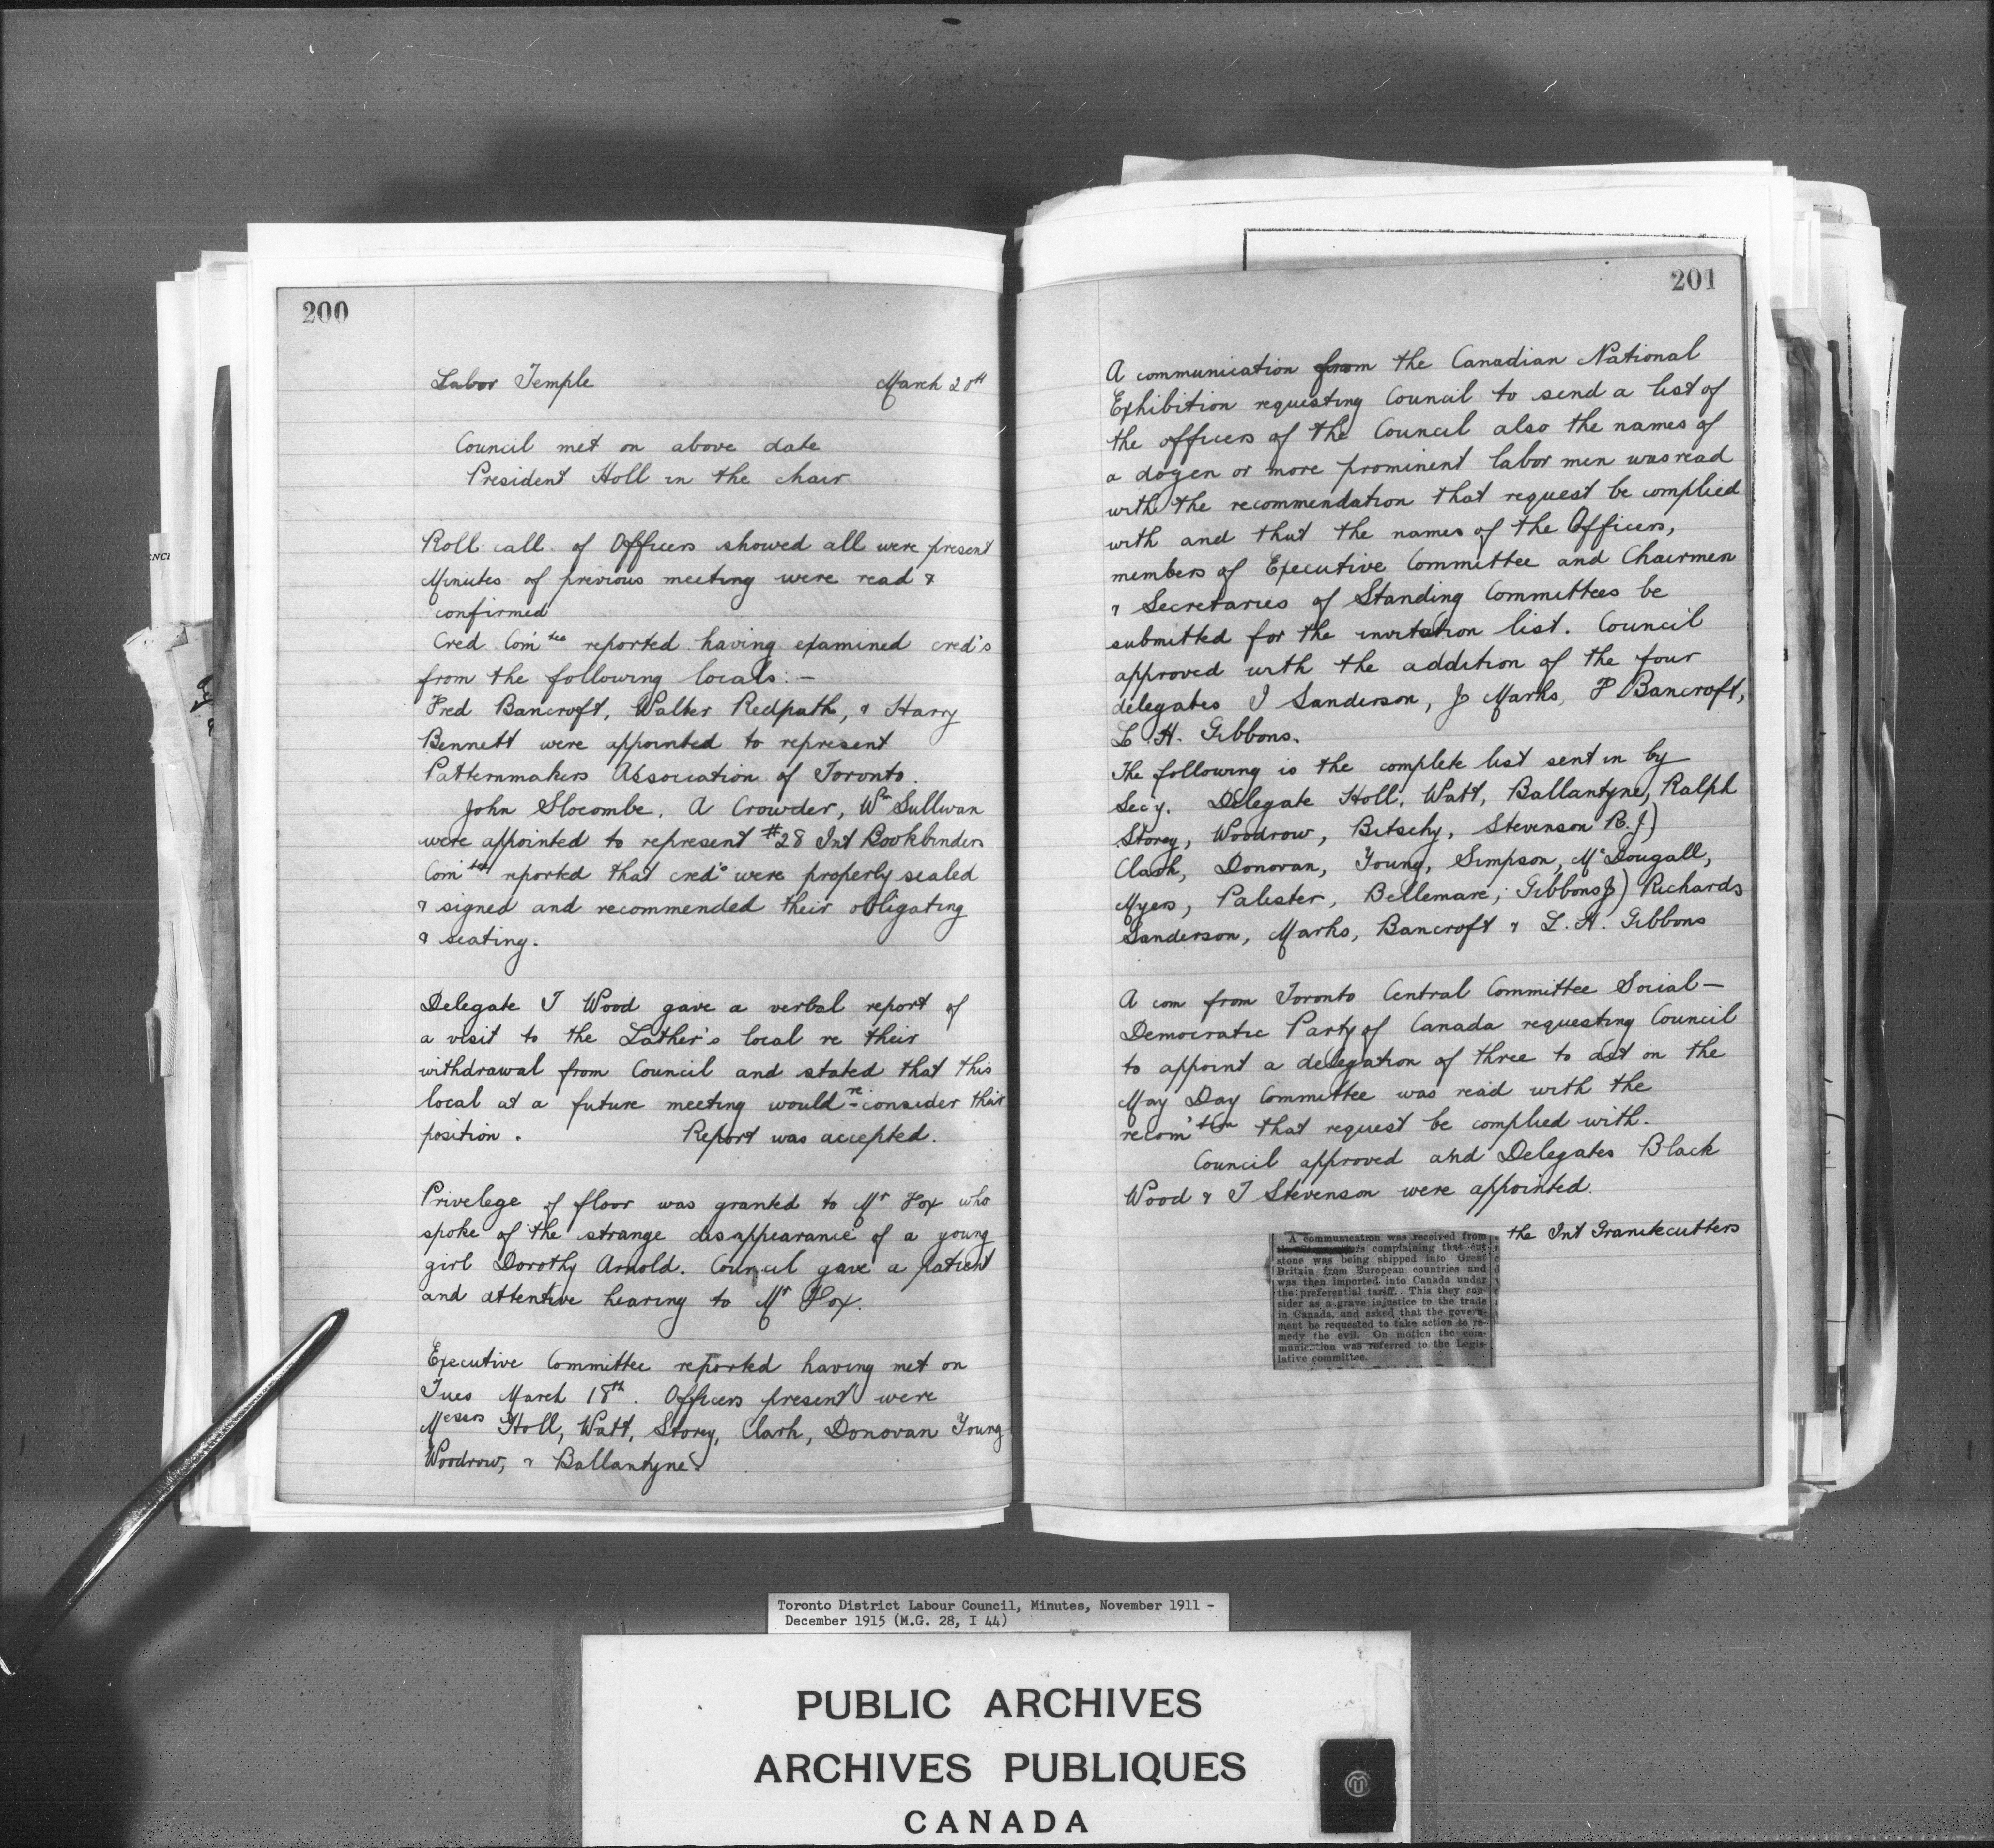 200
Labor Temple March 20th
Council met on above date
President Holl in the chair
Roll call of Officers showed all were present
Minutes of previous meeting were read &
confirmed
Cred Com'tee reported having examined cred's
from the following locals:—
Fred Bancroft, Walter Redpath, & Harry
Bennett were appointed to represent
Patternmakers Association of Toronto.
John Slocombe, A Crowder, Wm Sullivan
were appointed to represent #28 Int Bookbinders
Com'tee reported that cred's were properly sealed
& signed and recommended their obligating
& seating.
Delegate T Wood gave a verbal report of
a visit to the Lather's local re their
withdrawal from Council and stated that this
local at a future meeting would re-consider their
position. Report was accepted.
Privelege of floor was granted to Mr Fox who
spoke of the strange disappearance of a young
girl Dorothy Arnold. Council gave a patient
and attentive hearing to Mr Fox.
Executive Committee reported having met on
Tues March 18th. Officers present were
Messrs Holl, Watt, Storey, Clark, Donovan Young
Woodrow, & Ballantyne.
201
A communication from the Canadian National
Exhibition requesting Council to send a list of
the officers of the Council also the names of
a dozen or more prominent labor men was read
with the recommendation that request be complied
with and that the names of the Officers,
members of Executive Committee and Chairmen
& Secretaries of Standing Committees be
submitted for the invitation list. Council
approved with the addition of the four
delegates J Sanderson, J Marks, F Bancroft,
L H. Gibbons.
The following is the complete list sent in by
Sec'y. Delegate Holl, Watt, Ballantyne, Ralph
Storey, Woodrow, Bitschy, Stevenson R.J)
Clark, Donovan, Young, Simpson, McDougall,
Myers, Palister, Bellemare, Gibbons J) Richards
Sanderson, Marks, Bancroft & L. H. Gibbons
A com from Toronto Central Committee Social—
Democratic Party of Canada requesting Council
to appoint a delegation of three to act on the
May Day Committee was read with the
recom'tion that request be complied with.
Council approved and Delegates Black
Wood & J Stevenson were appointed.
the Int Granitecutters
A communication was received from
complaining that cut
stone was being shipped into Great
Britain from European countries and
was then imported into Canada under
the preferential tariff. This they con-
sider as a grave injustice to the trade
in Canada, and asked that the govern-
ment be requested to take action to re-
medy the evil. On motion the com-
munication was referred to the Legis-
lative committee.
Toronto District Labour Council, Minutes, November 1911 -
December 1915 (M.G. 28, I 44)
PUBLIC ARCHIVES
ARCHIVES PUBLIQUES
CANADA